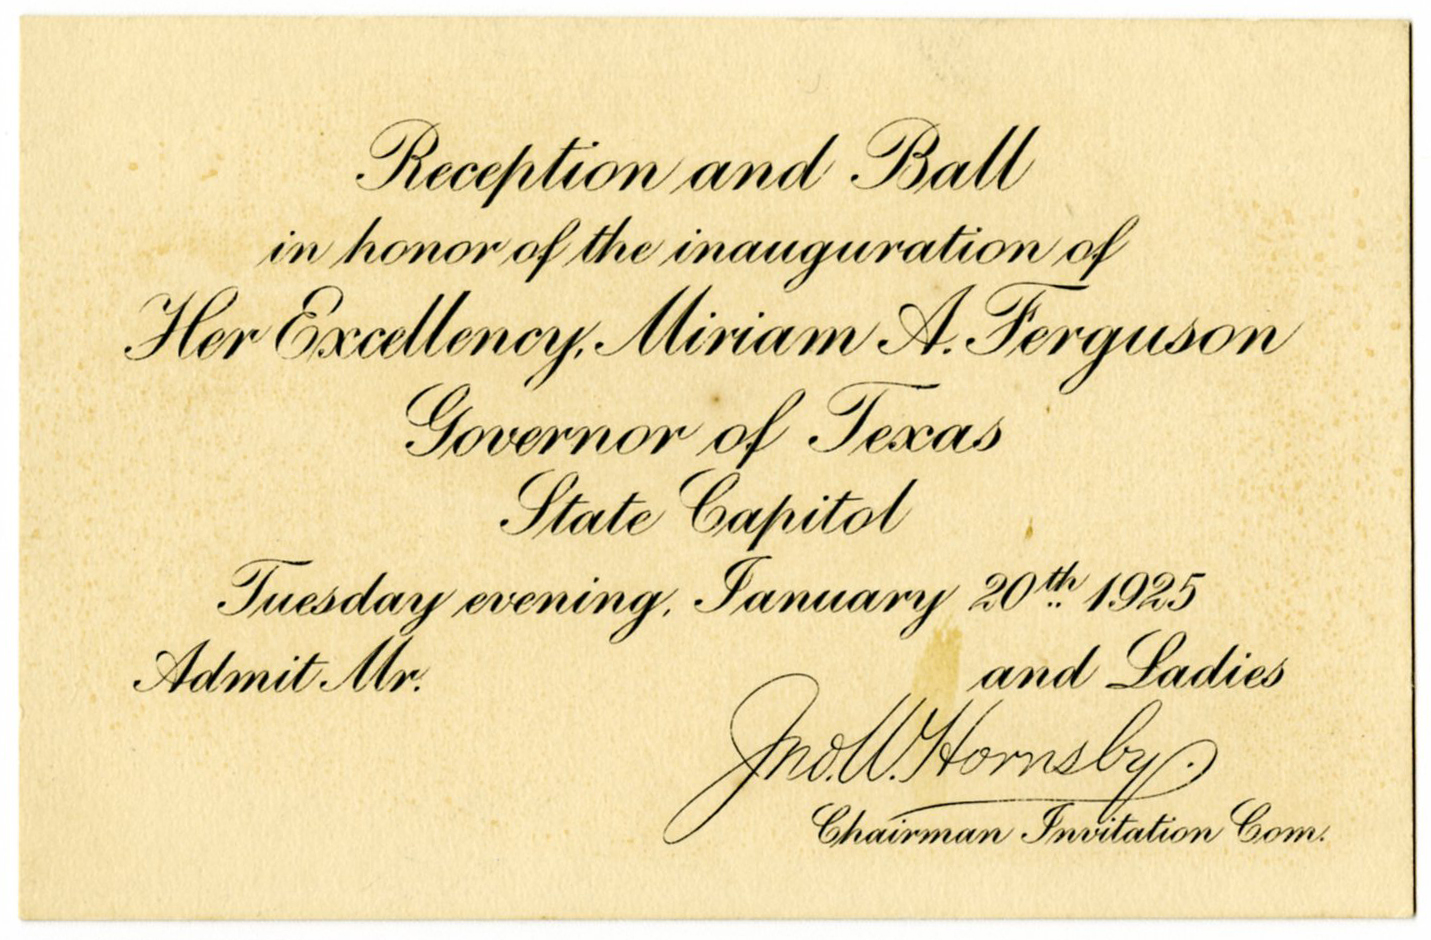 Reception and Ball
in honor of the inauguration of
Her Excellency, Miriam A. Ferguson
Governor of Texas
State Capitol
Tuesday evening, January 20th 1925
Admit Mr. and Ladies
Jno. W. Hornsby.
Chairman Invitation Com.